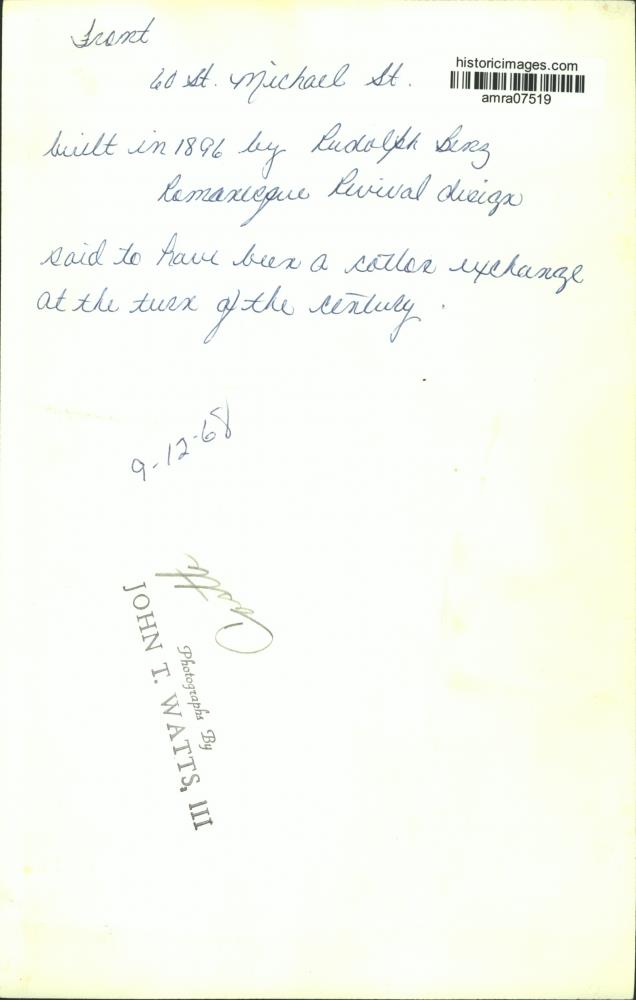 Front
60 St. Michael St.
historicimages.com
amra07519
built in 1896 by Rudolph Benz
Romanesque Revival design
said to have been a cotton exchange
at the turn of the century.
9-12-68
Photographs By
JOHN T. WATTS, III